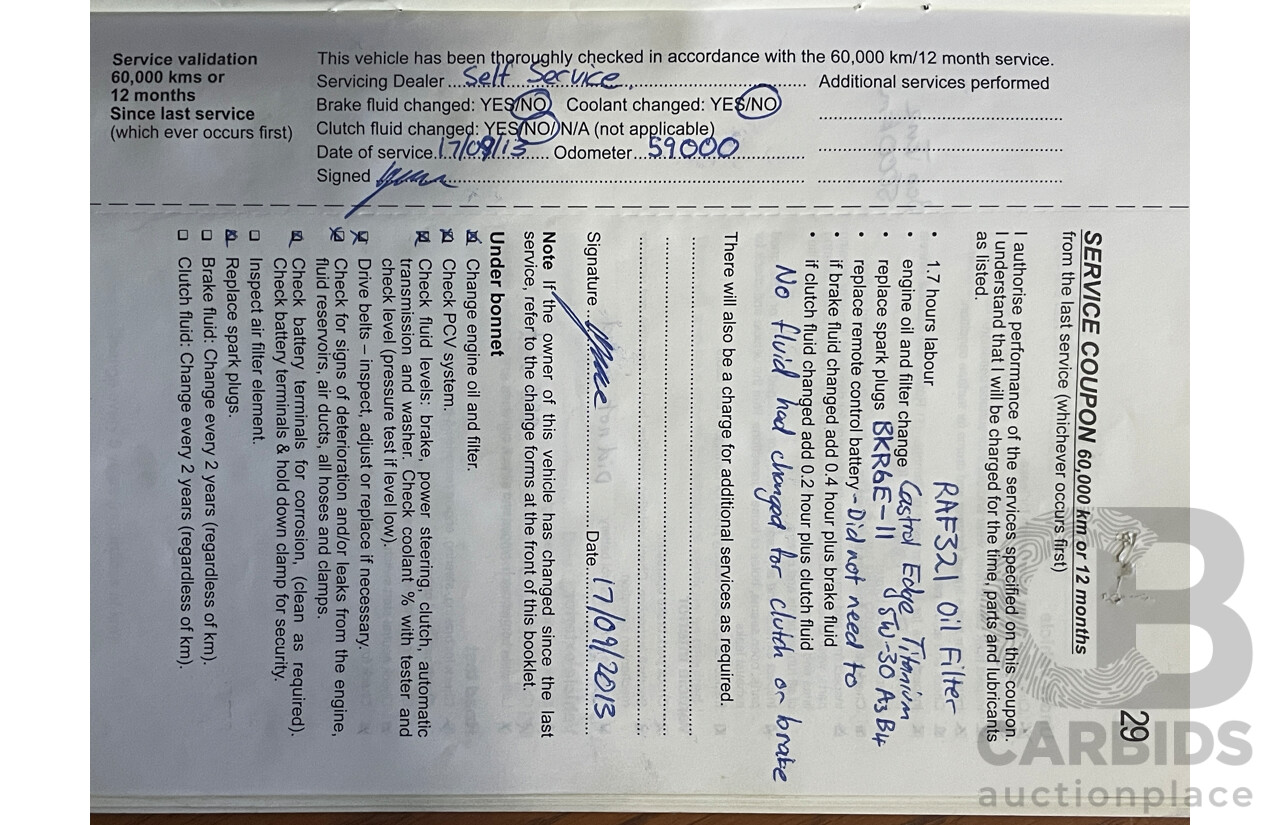 Service validation
60,000 kms or
12 months
Since last service
(which ever occurs first)
This vehicle has been thoroughly checked in accordance with the 60,000 km/12 month service.
Servicing Dealer Self Service Additional services performed
Brake fluid changed: YES/NO Coolant changed: YES/NO
Clutch fluid changed: YES/NO/N/A (not applicable)
Date of service 17/09/13 Odometer 59000
Signed
SERVICE COUPON 60,000 km or 12 months
29
from the last service (whichever occurs first)
I authorise performance of the services specified on this coupon.
I understand that I will be charged for the time, parts and lubricants
as listed.
RAF321 Oil Filter
• 1.7 hours labour
• engine oil and filter change Castrol Edge Titanium
5W-30 A3 B4
• replace spark plugs BKR6E-11
• replace remote control battery - Did not need to
• if brake fluid changed add 0.4 hour plus brake fluid
• if clutch fluid changed add 0.2 hour plus clutch fluid
No fluid had changed for clutch or brake
There will also be a charge for additional services as required.
Signature Date 17/09/2013
Note If the owner of this vehicle has changed since the last
service, refer to the change forms at the front of this booklet.
Under bonnet
Change engine oil and filter.
Check PCV system.
Check fluid levels: brake, power steering, clutch, automatic
transmission and washer. Check coolant % with tester and
check level (pressure test if level low).
Drive belts – inspect, adjust or replace if necessary.
Check for signs of deterioration and/or leaks from the engine,
fluid reservoirs, air ducts, all hoses and clamps.
Check battery terminals for corrosion, (clean as required).
Check battery terminals & hold down clamp for security.
Inspect air filter element.
Replace spark plugs.
Brake fluid: Change every 2 years (regardless of km).
Clutch fluid: Change every 2 years (regardless of km).
CARBIDS
auctionplace